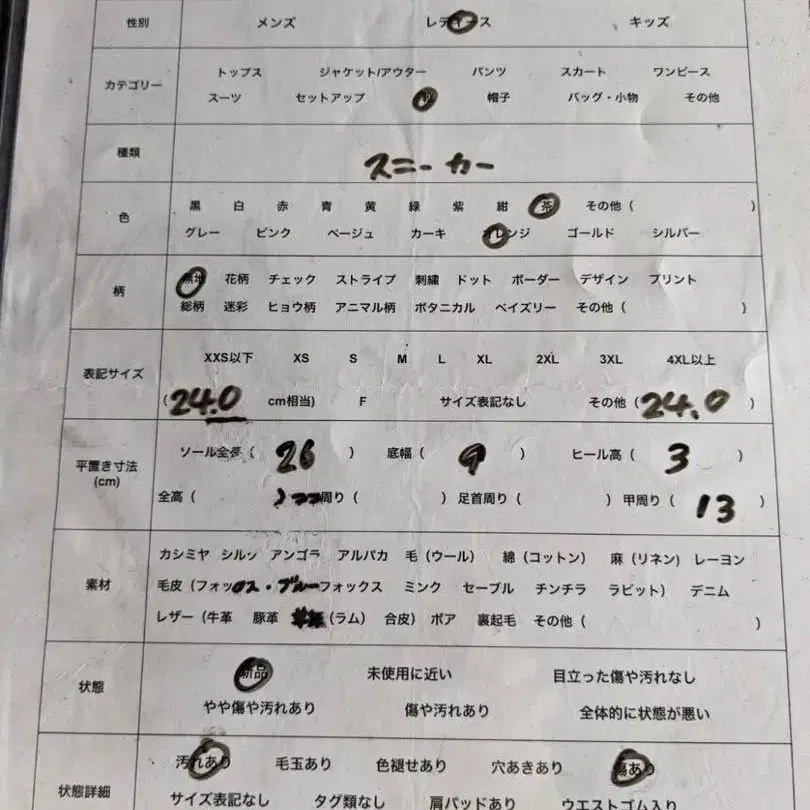 性別 メンズ レディース キッズ
カテゴリー トップス ジャケット/アウター パンツ スカート ワンピース
スーツ セットアップ 帽子 バッグ・小物 その他
種類 スニーカー
色 黒 白 赤 青 黄 緑 紫 紺 茶 その他 ( )
グレー ピンク ベージュ カーキ オレンジ ゴールド シルバー
柄 無地 花柄 チェック ストライプ 刺繍 ドット ボーダー デザイン プリント
総柄 迷彩 ヒョウ柄 アニマル柄 ボタニカル ペイズリー その他 ( )
表記サイズ XXS以下 XS S M L XL 2XL 3XL 4XL以上
(24.0 cm相当) F サイズ表記なし その他 (24.0 )
平置き寸法 (cm) ソール全長 ( 26 ) 底幅 ( 9 ) ヒール高 ( 3 )
全高 ( ) 周り ( ) 足首周り ( ) 甲周り ( 13 )
素材 カシミヤ シルク アンゴラ アルパカ 毛 (ウール) 綿 (コットン) 麻 (リネン) レーヨン
毛皮 (フォックス・ブルーフォックス ミンク セーブル チンチラ ラビット) デニム
レザー (牛革 豚革 (ラム) 合皮) ボア 裏起毛 その他 ( )
状態 新品 未使用に近い 目立った傷や汚れなし
やや傷や汚れあり 傷や汚れあり 全体的に状態が悪い
状態詳細 汚れあり 毛玉あり 色褪せあり 穴あきあり 傷あり
サイズ表記なし タグ類なし 肩パッドあり ウエストゴム入り